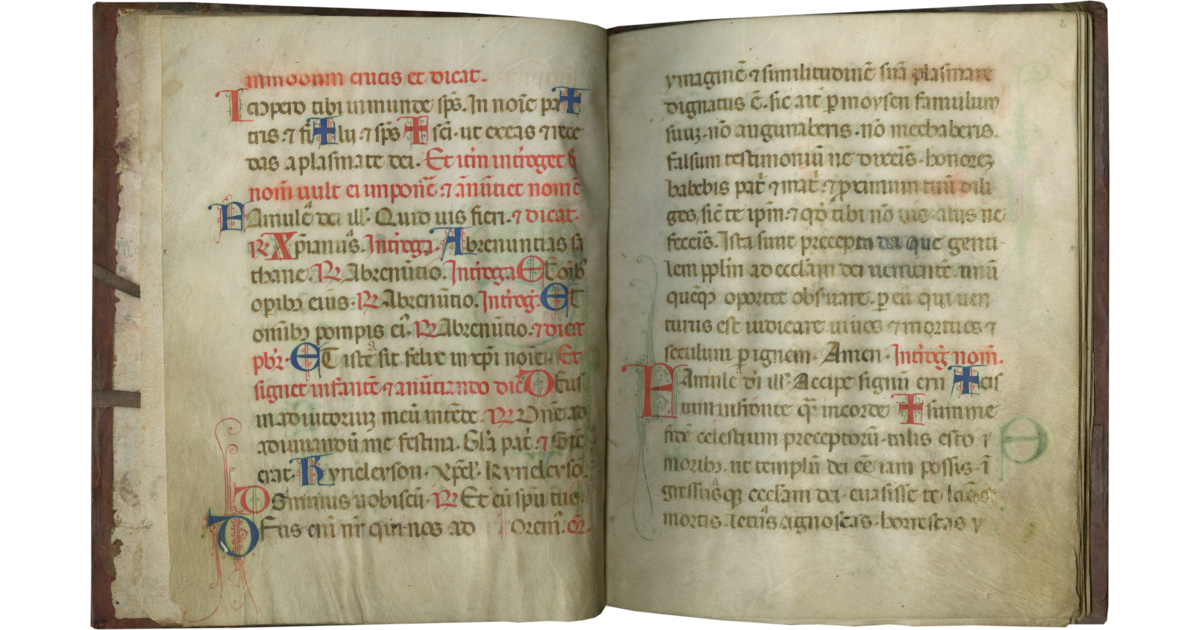 in modum crucis et dicat.
Impero tibi inmunde sp̄s. In noīe pa✝
tris. ⁊ fi✝lii. ⁊ sp̄s ✝ sc̄i. ut exeas ⁊ rece
das a plasmate dei. Et itm̄ int̄roget
nom̄ uult ei imponē. ⁊ an̄ntiet nomē
Famule dei ill'. Quid uis fieri. ⁊ dicat.
R Xp̄ianus. Int̄rega. Abrenuntias sa
thane. R Abrenūtio. Int̄rega Et oīb'
opib; eius. R Abrenūtio. Int̄rog. Et
omīb; pompis ei'. R Abrenūtio. ⁊ dicat
pb̄r. Et iste sit felix in xp̄i noīe. Et
signet infantē ⁊ anūtiando dic̄ Deus
in adiutorium meū intēde. R Dn̄e ad
adiuuandū me festina. Gl̄a pat̄ ⁊ Sic̄
erat. Kyrieleyson. Xp̄el'. Kyrieleyso.
Dominus uobiscū. R Et cū spu tuo.
Deus qui nos ad Orem. or.
2
ymaginē ⁊ similitudinē suā plasmare
dignatus ē. sic ait p moysen famulum
suuz. nō auguraberis. nō mechaberis.
falsum testimoniū ne dixeris. honorez
habebis pat̄ ⁊ mat̄. ⁊ pximum tuū dili
ges, sic̄ te ipm̄. ⁊ qd̄ tibi nō uis. aliis ne
feceris. Ista sunt precepta dei que genti
lem pplm̄ ad eccl̄am dei uenientē. unū
quēq; oportet obs̄uare. p eū qui uen
turus est iudicare uiuos ⁊ mortuos ⁊
seculum p ignem. Amen. Int̄rog nom̄.
Famule dī ill'. Accipe signū cru ✝ cis
tam in fronte qr̄ in corde ✝ summe
fidē celestium preceptorū. talis esto ī
morib;. ut templū dei eē iam possis. ī
gressusq; eccl̄am dei. euasisse te laqueos
mortis. letus agnoscas. horrescas y